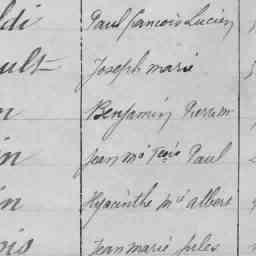 ldi Paul francois Lucien
ult Joseph marie
n Benjamin Pierre m
in Jean m^ie Fçois Paul
in Hyacinthe m^ie albert
ois Jean marie jules